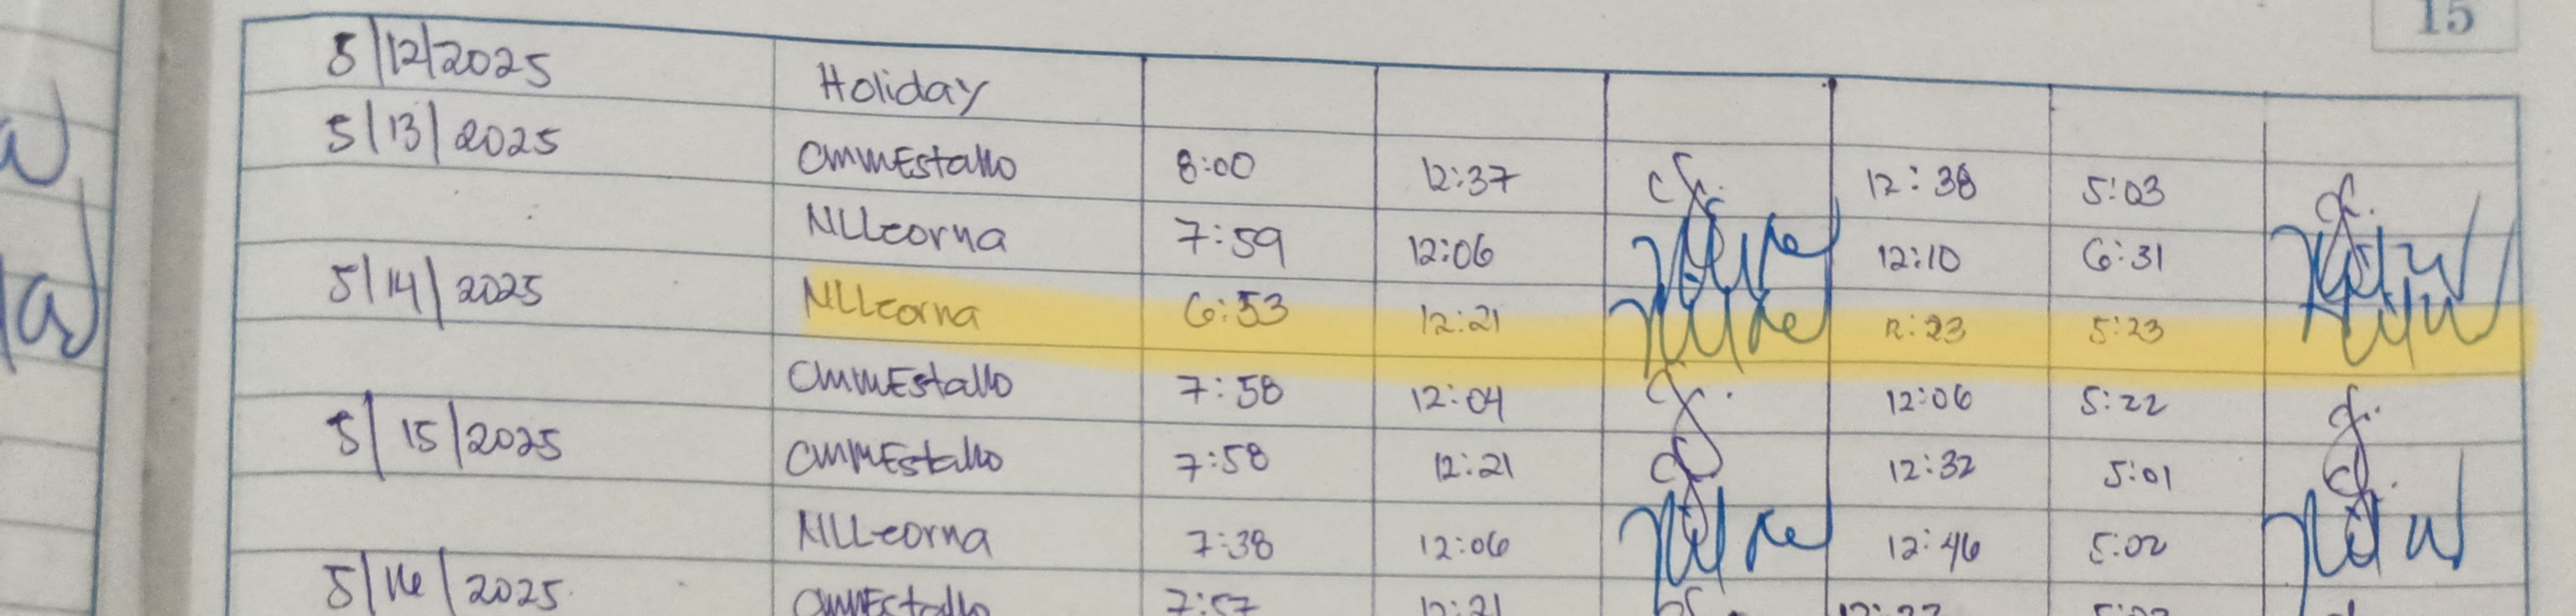 15
5/12/2025 Holiday
5/13/2025 CMMEstallo 8:00 12:37 12:38 5:03
NLLcorna 7:59 12:06 12:10 6:31
5/14/2025 NLLcorna 6:53 12:21 12:23 5:23
CMMEstallo 7:58 12:04 12:06 5:22
5/15/2025 CMMEstallo 7:58 12:21 12:32 5:01
NLLcorna 7:38 12:06 12:46 5:02
5/16/2025 CMMEstallo 7:57 12:21